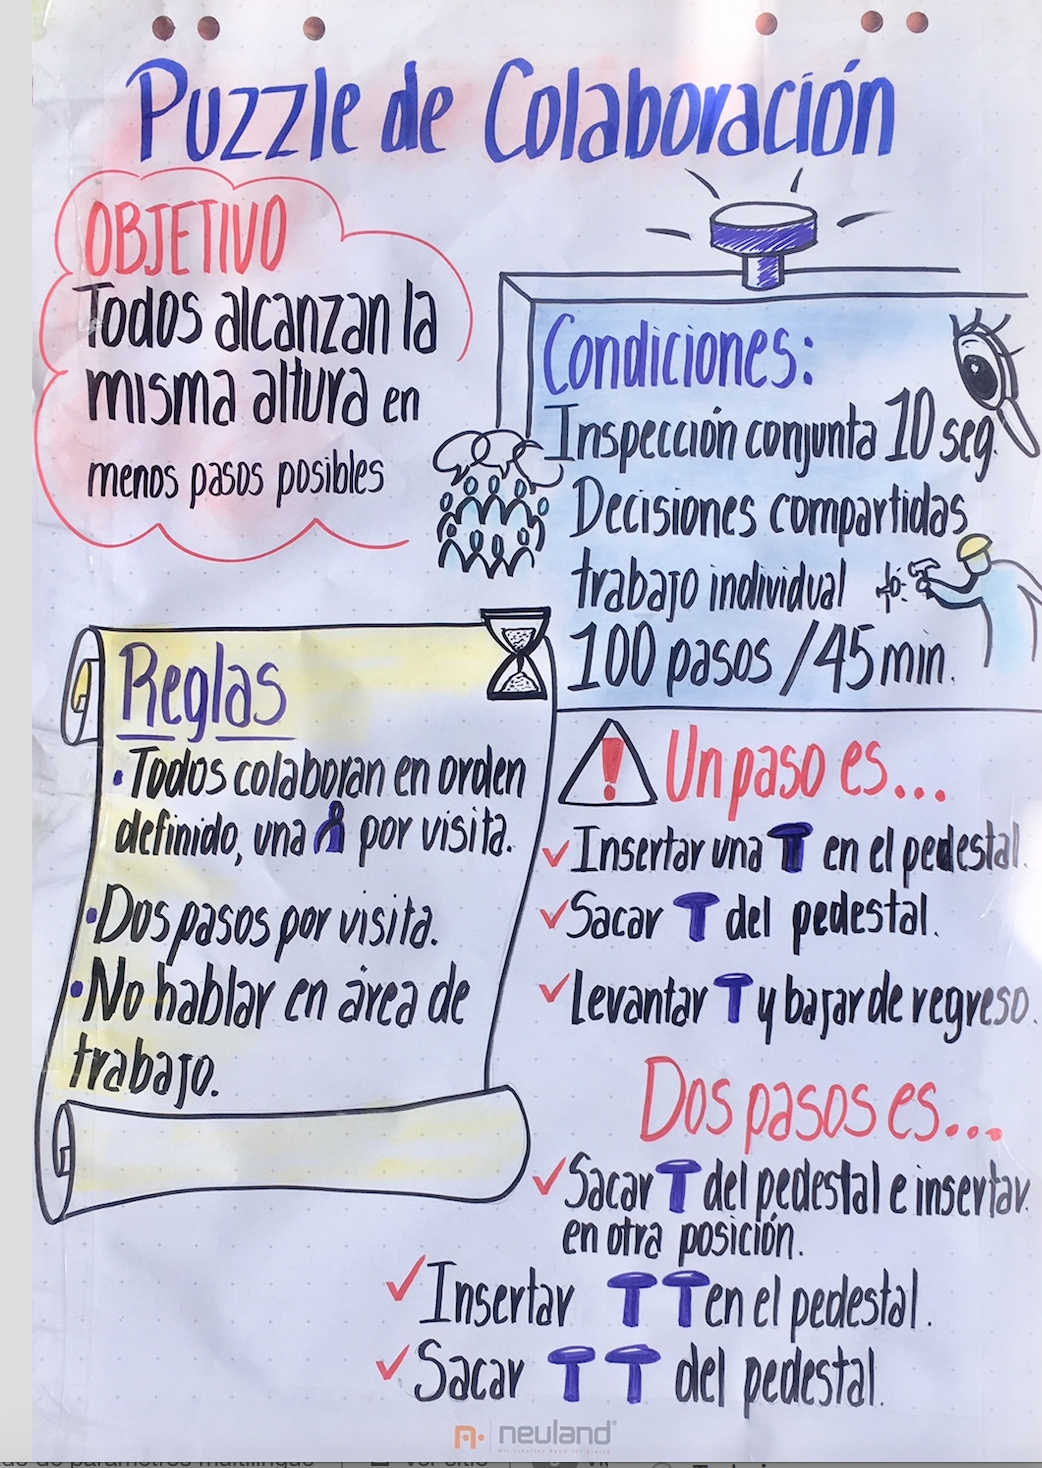 Puzzle de Colaboración
OBJETIVO
Todos alcanzan la
misma altura en
menos pasos posibles
Condiciones:
Inspección conjunta 10 seg.
Decisiones compartidas
trabajo individual
100 pasos / 45 min.
Reglas
• Todos colaboran en orden
definido, una por visita.
• Dos pasos por visita.
• No hablar en área de
trabajo.
! Un paso es...
✓ Insertar una T en el pedestal.
✓ Sacar T del pedestal.
✓ Levantar T y bajar de regreso.
Dos pasos es...
✓ Sacar T del pedestal e insertar
en otra posición.
✓ Insertar T T en el pedestal.
✓ Sacar T T del pedestal.
neuland